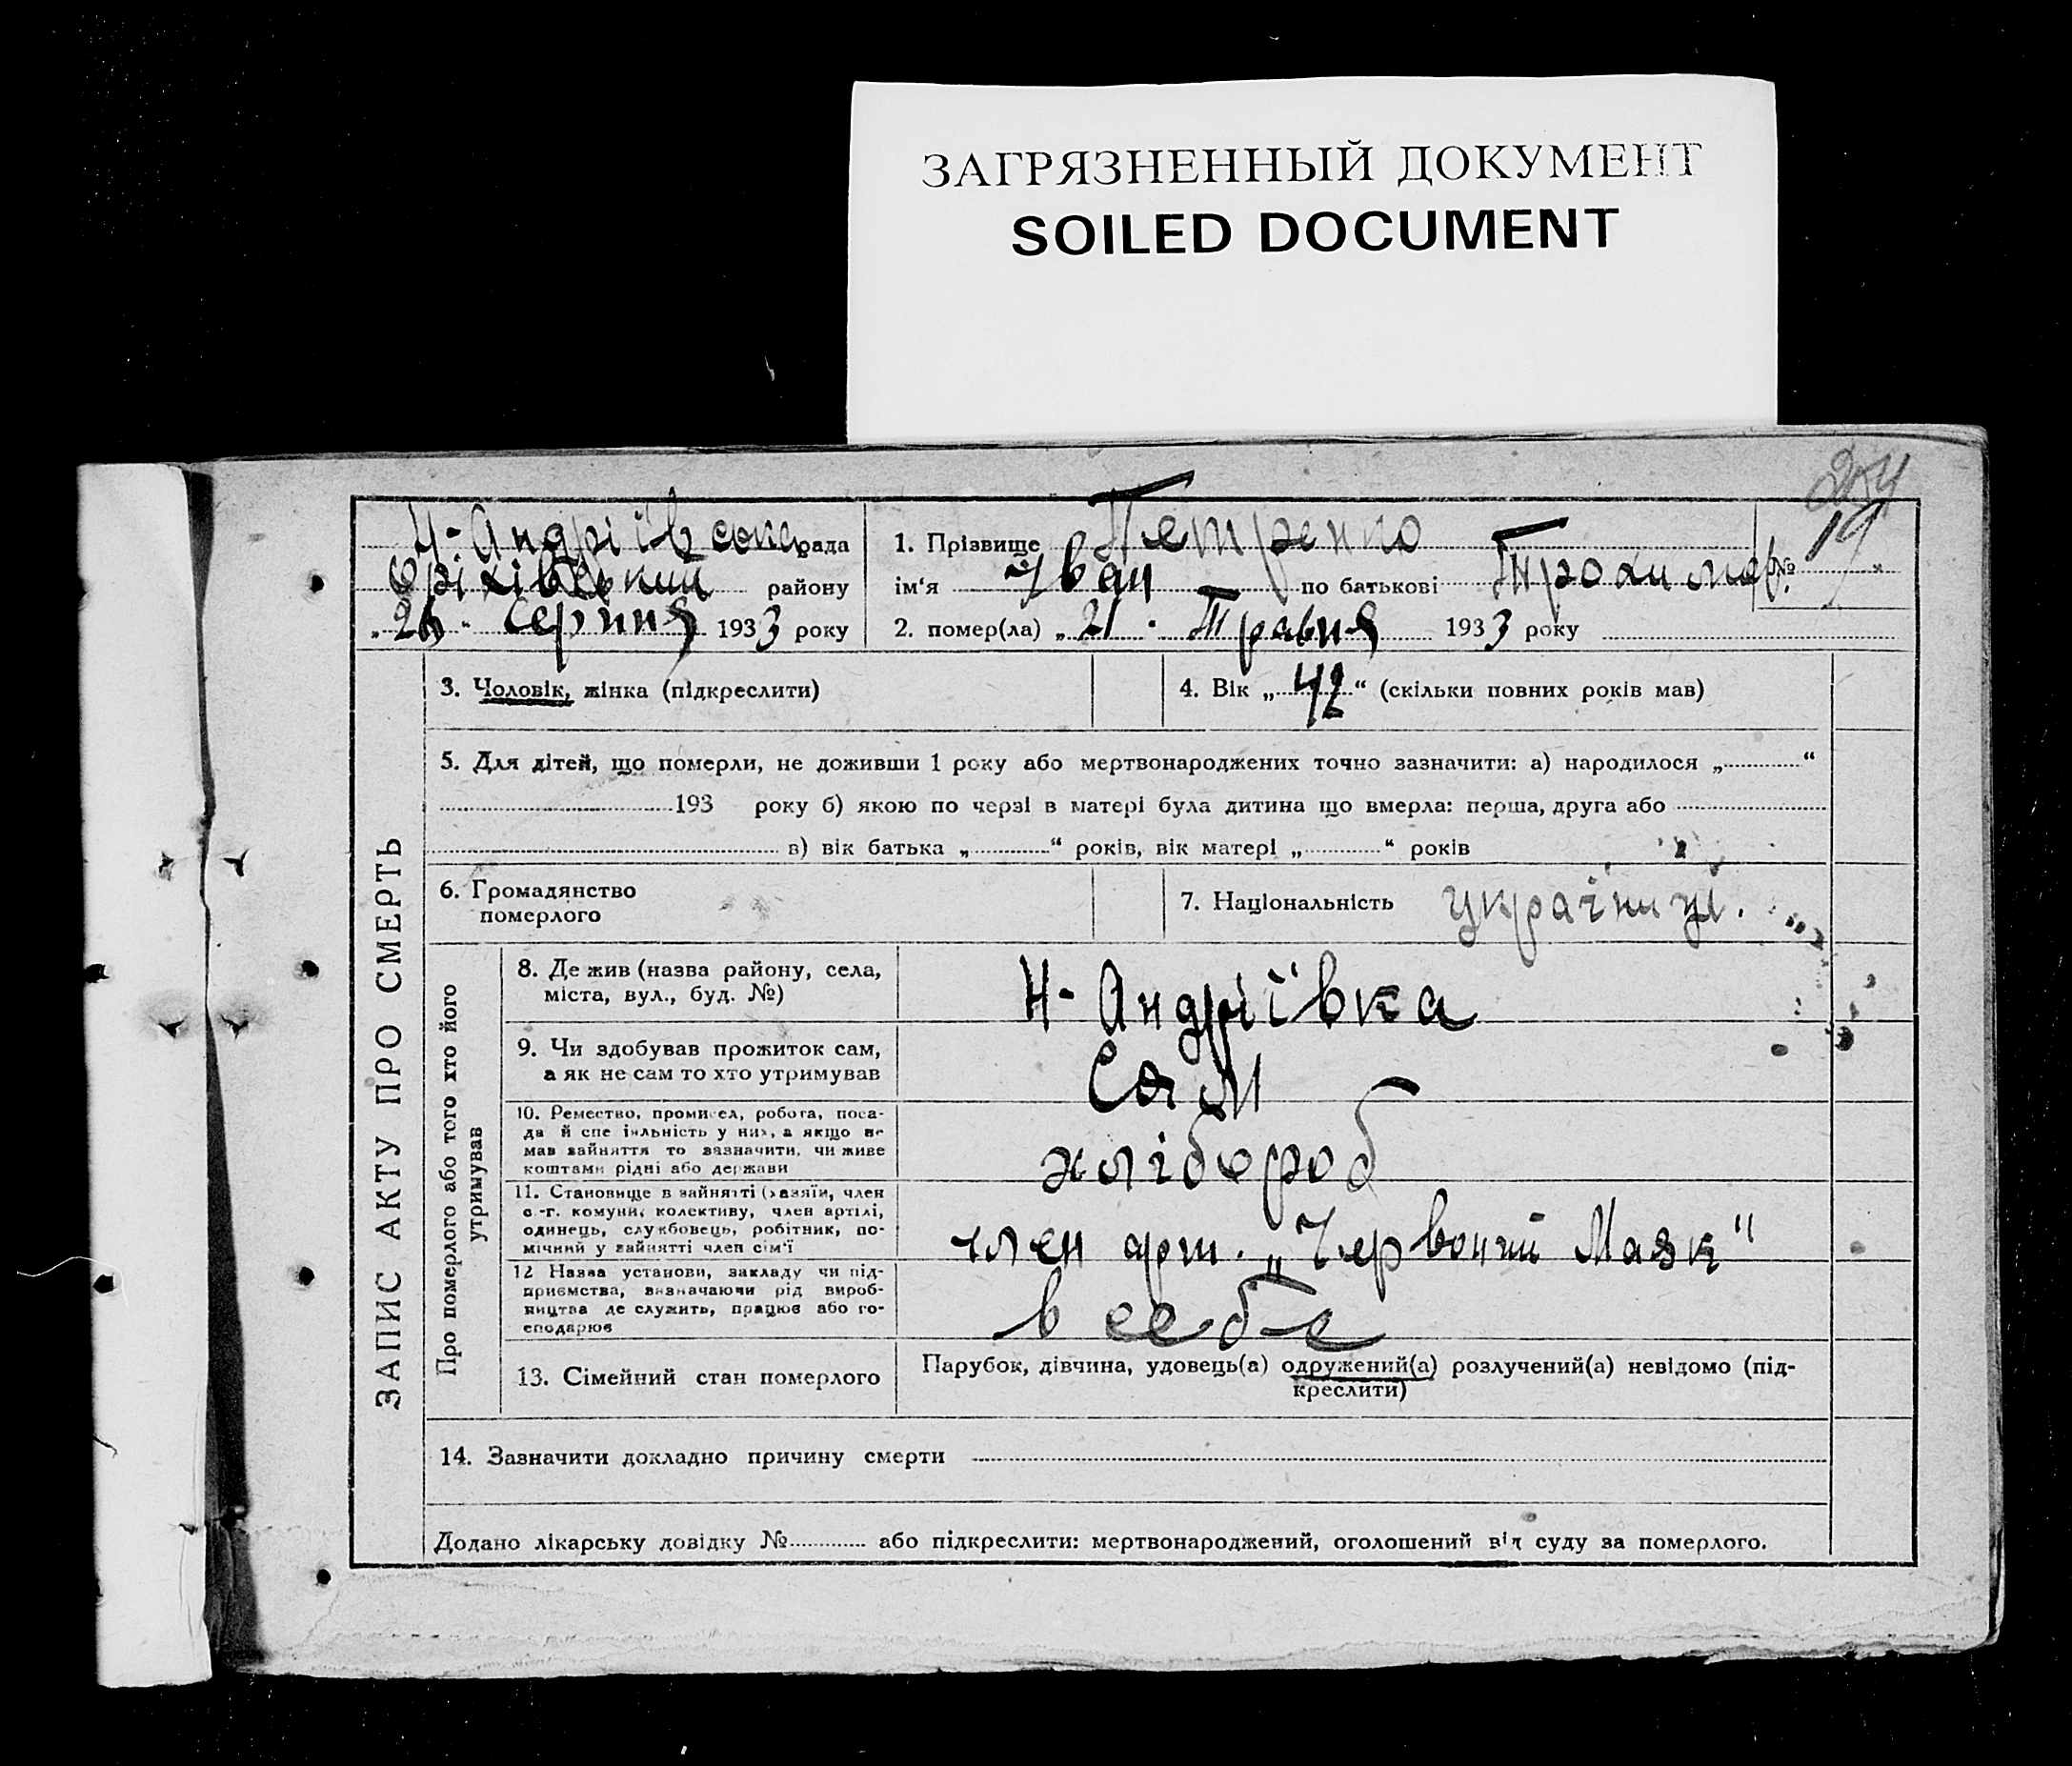 ЗАГРЯЗНЕННЫЙ ДОКУМЕНТ
SOILED DOCUMENT
Н-Андріївська рада
Оріхівський району
„26“ серпня 1933 року
1. Прізвище Петренко
ім‘я Іван по батькові Трохимов.
№ 19 “
2. помер(ла) „21. Травня 1933 року
ЗАПИС АКТУ ПРО СМЕРТЬ
3. Чоловік, жінка (підкреслити)
4. Вік „42“ (скільки повних років мав)
5. Для дітей, що померли, не доживши 1 року або мертвонароджених точно зазначити: а) народилося „............“
193 року б) якою по черзі в матері була дитина що вмерла: перша, друга або
в) вік батька „............“ років, вік матері „............“ років
6. Громадянство
померлого
7. Національність україниці.
Про померлого або того хто його
утримував
8. Де жив (назва району, села,
міста, вул., буд. №)
Н-Андріївка
9. Чи здобував прожиток сам,
а як не сам то хто утримував
Сам
10. Ремество, промисел, робота, поса-
да й спеціяльність у них, а якщо не
мав зайняття то зазначити, чи живе
коштами рідні або держави
хлібороб
11. Становище в зайнятті (хазяїн, член
с.-г. комуни, колективу, член артілі,
одинець, службовець, робітник, по-
мічний у зайнятті член сім‘ї
член арт. „Червоний Маяк“
12 Назва установи, закладу чи під-
приємства, визначаючи рід вироб-
ництва де служить, працює або го-
сподарює
в себе
13. Сімейний стан померлого
Парубок, дівчина, удовець(а) одружений(а) розлучений(а) невідомо (під-
креслити)
14. Зазначити докладно причину смерти
Додано лікарську довідку №............ або підкреслити: мертвонароджений, оголошений від суду за померлого.